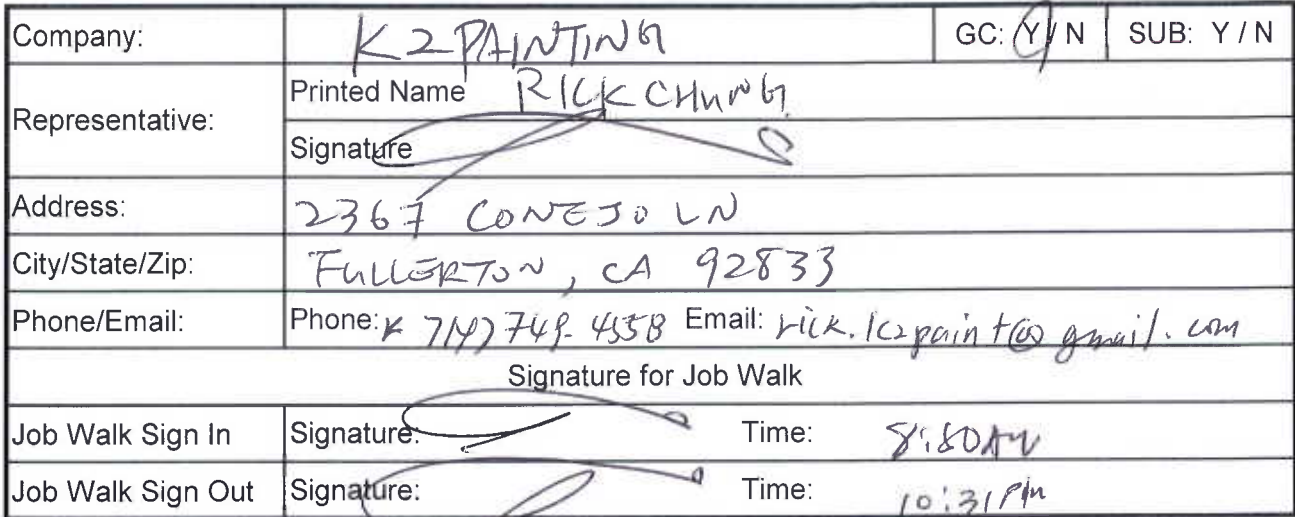 Company: K2 PAINTING GC: Y / N SUB: Y / N
Representative: Printed Name RICK CHUNG
Signature
Address: 2367 CONEJO LN
City/State/Zip: FULLERTON, CA 92833
Phone/Email: Phone: 714) 749-4558 Email: rick.k2paint@gmail.com
Signature for Job Walk
Job Walk Sign In Signature: Time: AM
Job Walk Sign Out Signature: Time: 10:31 PM